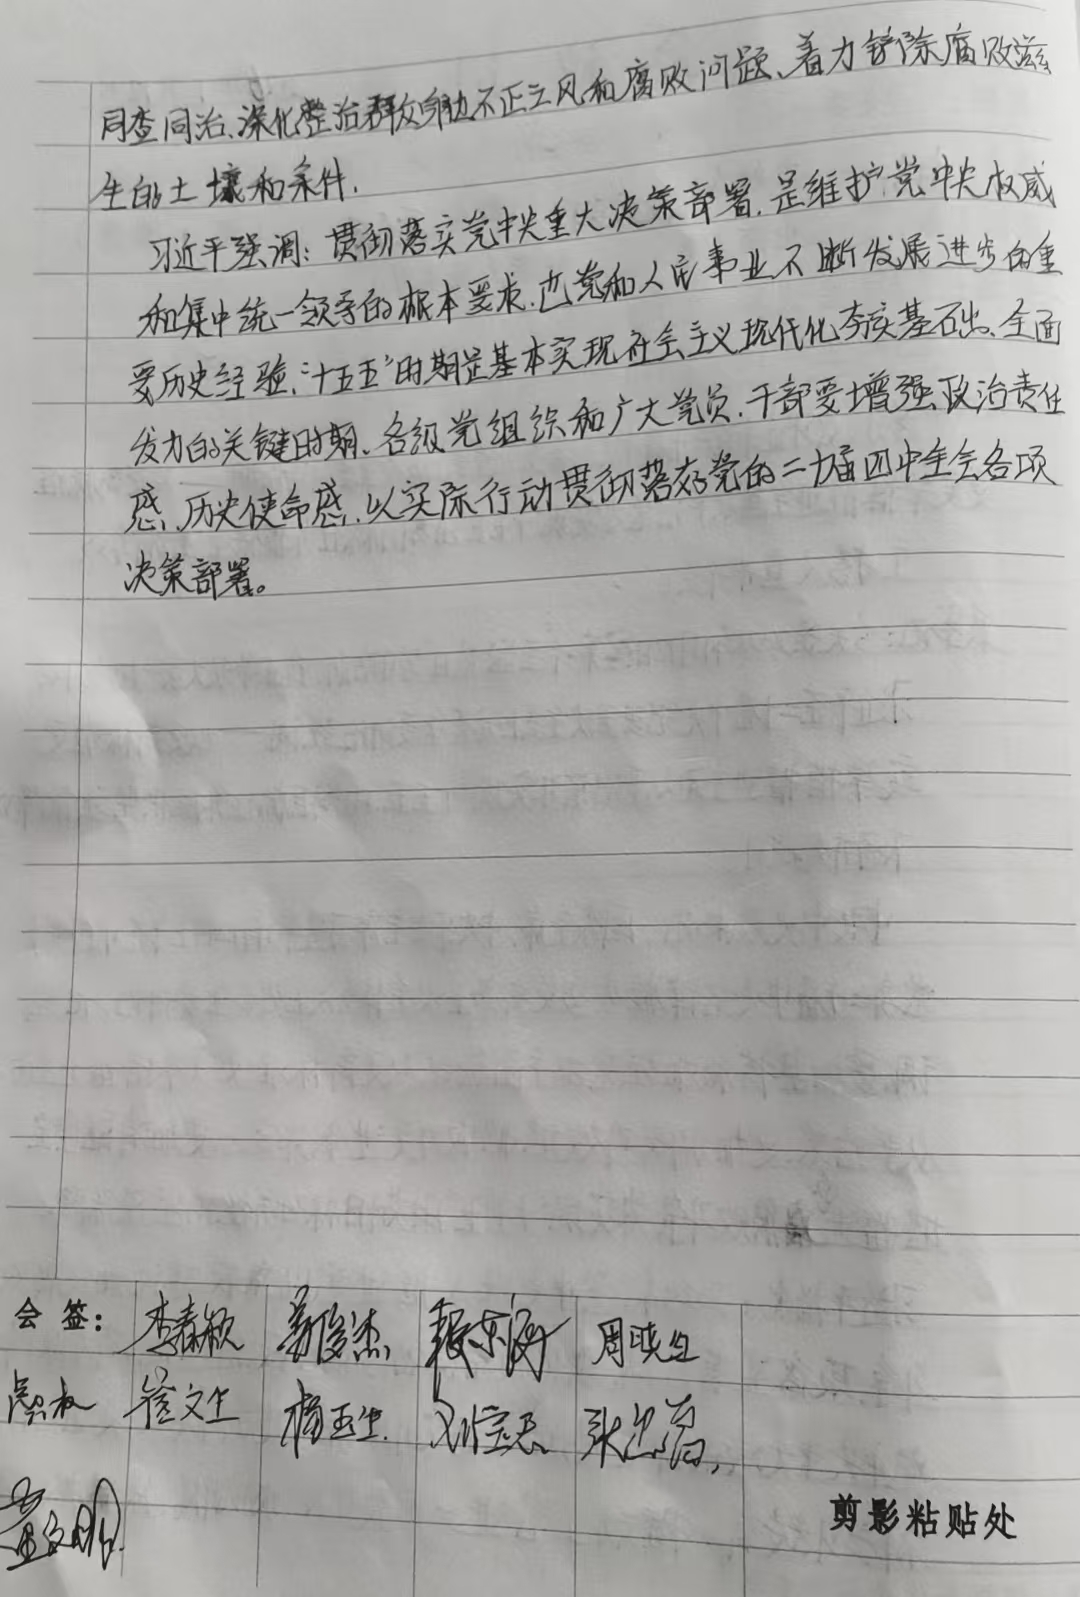 同查同治、深化整治群众身边不正之风和腐败问题、着力铲除腐败滋
生的土壤和条件.
习近平强调:贯彻落实党中央重大决策部署.是维护党中央权威
和集中统一领导的根本要求.也党和人民事业不断发展进步的重
要历史经验、“十五五”时期是基本实现社会主义现代化夯实基础、全面
发力的关键时期、各级党组织和广大党员.干部要增强政治责任
感、历史使命感.以实际行动贯彻落实党的二十届四中全会各项
决策部署。
会 签: 李春颖 周晓生
崔文生 杨玉生 刘宝忠
剪影粘贴处